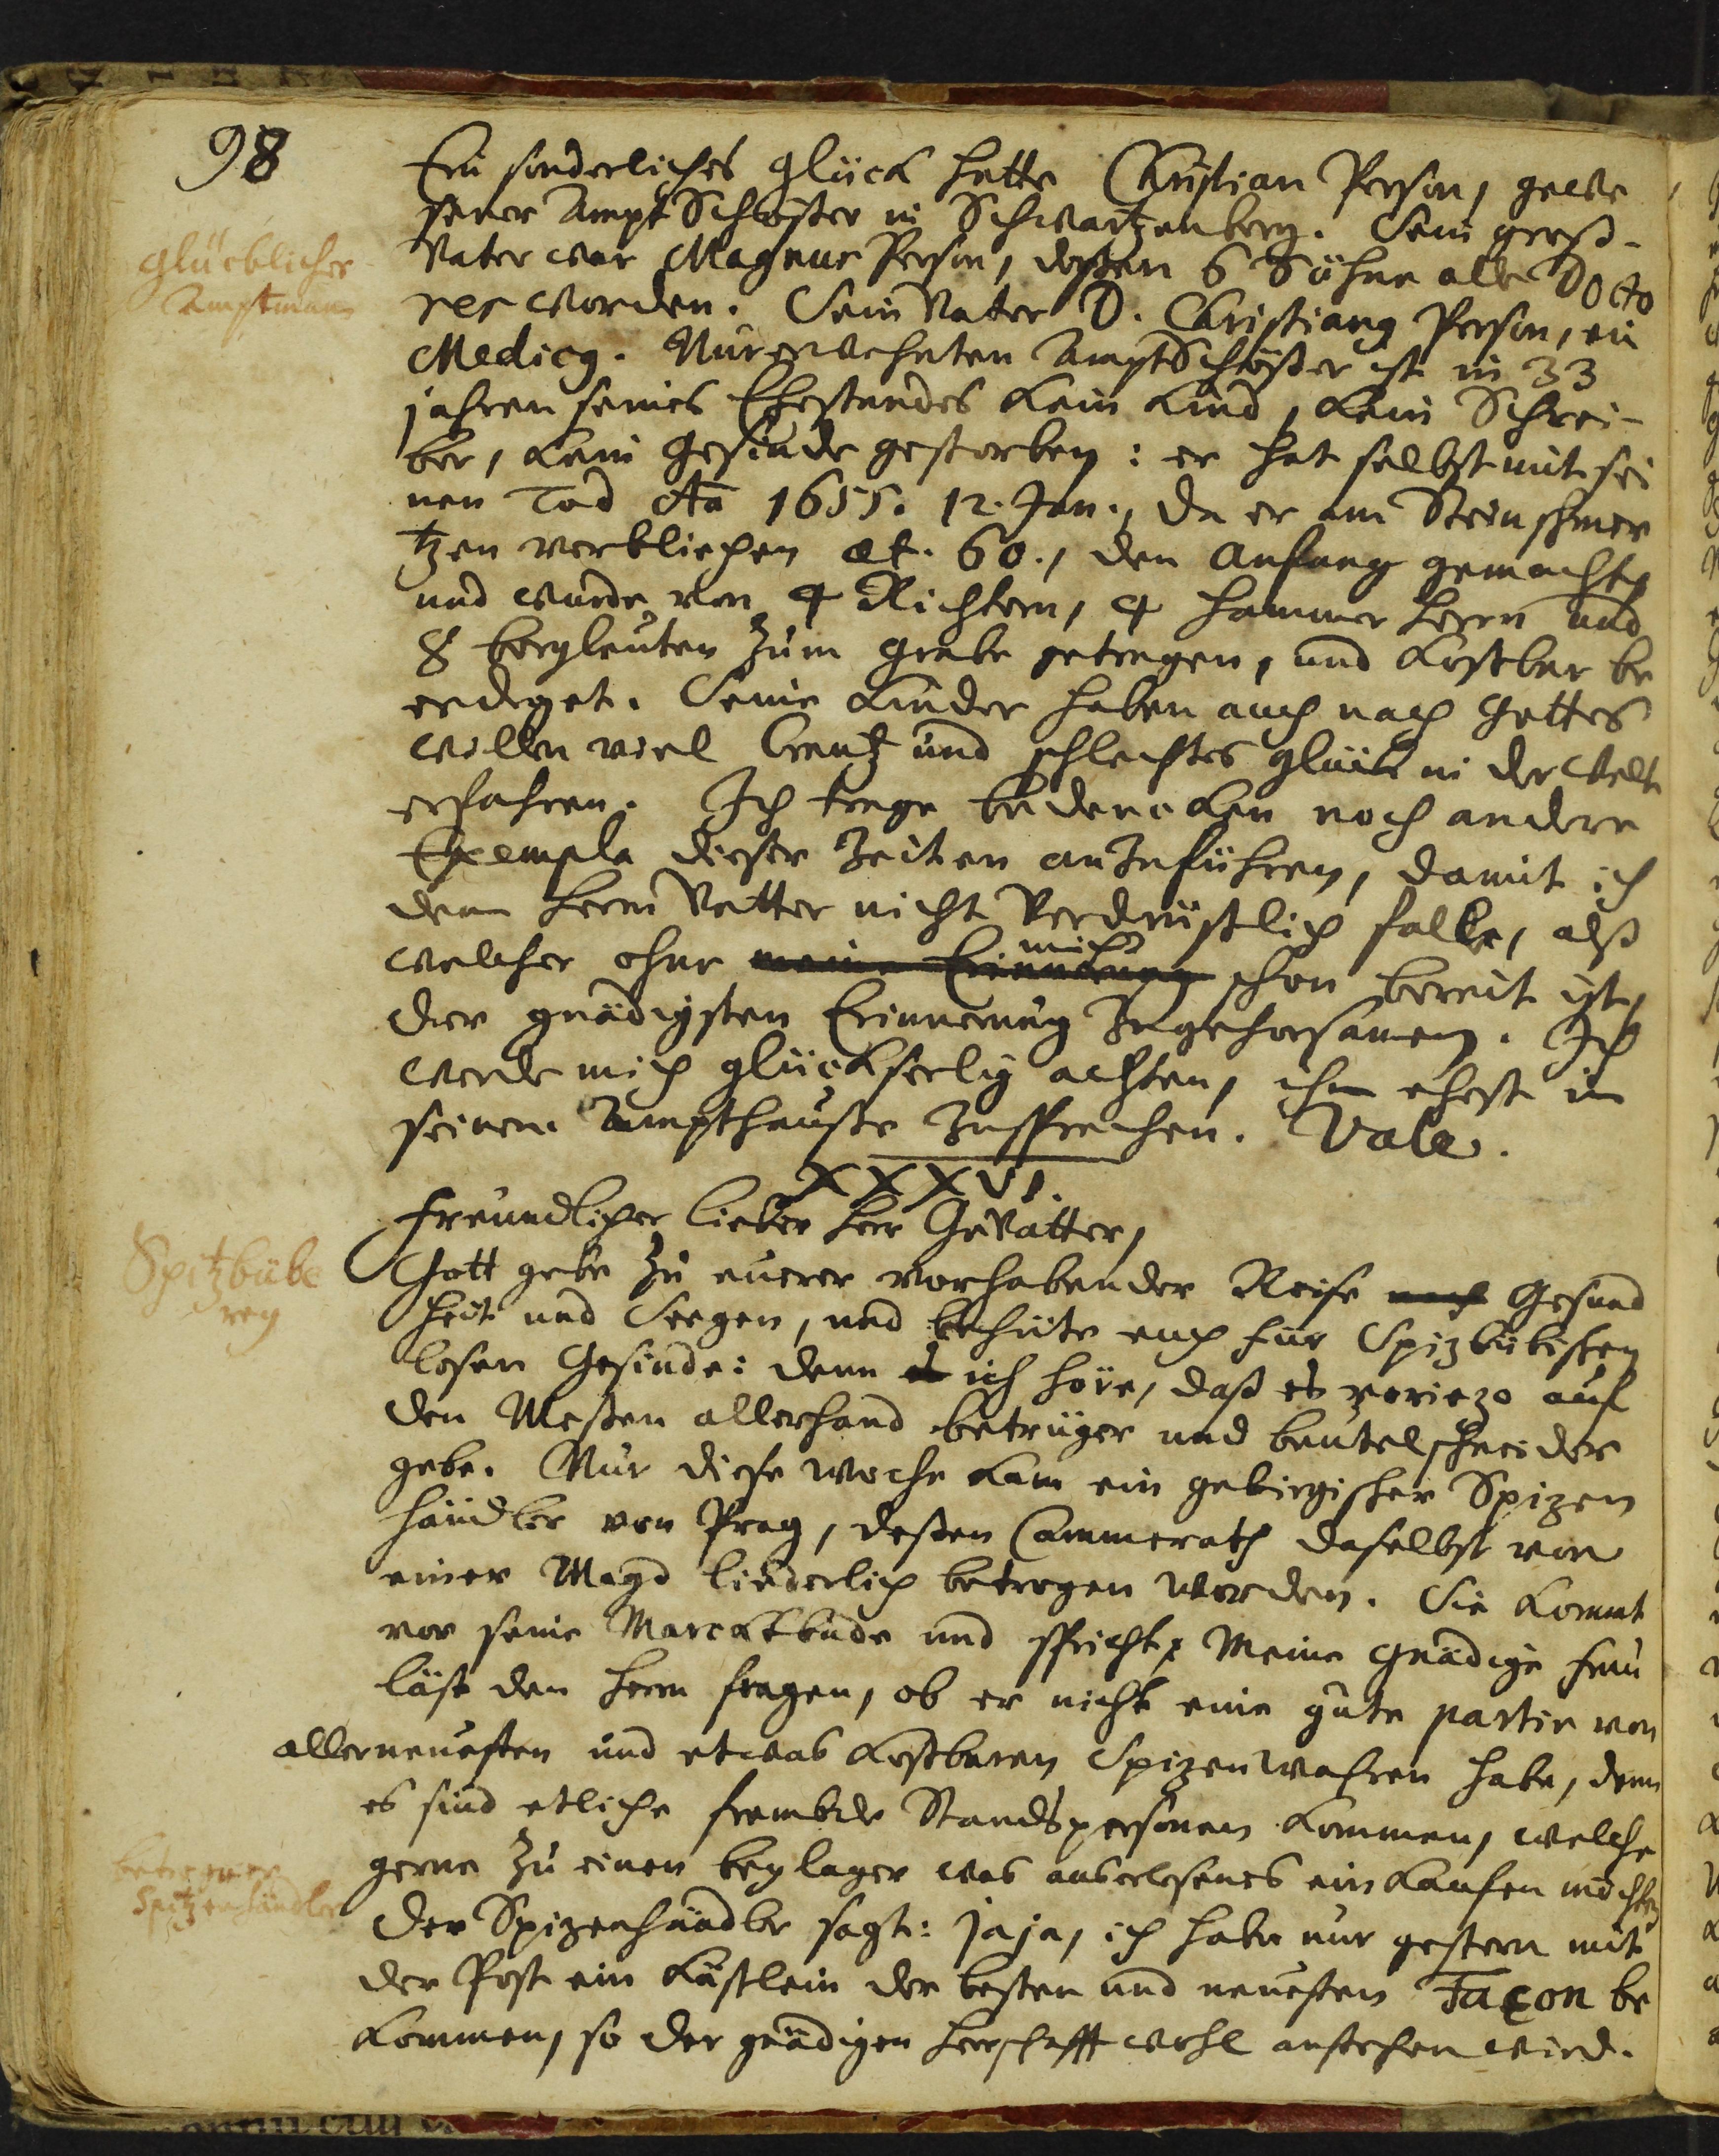 98
Ein sonderliches Glück hatte Christian Person, gewe
sener Ampt Schösser in Schwartzenberg. Sein groß-
glücklicher
Amptmann
Vater war Magnus Person, dessen 6 Söhne alle Docto
res worden. Sein Vater D. Christiang Person, ein
Medicg. Nur erwehnten AmptSchösser ist in 33
jahren seines Ehestandes kein Kind, kein Schrei-
ber, kein Gesinde gestorben: er hat selbst mit sei
nen Tod Ao 1655. 12. Jan., da er am Steinschmer
tzen verbliechen æt. 60., den Anfang gemacht,
und wurde von 4 Richtern, 4 Hammer Herrn und
8 bergleuten zum Grabe getragen, und kostbar be
erdiget. Seine Kinder haben auch nach Gottes
willen viel Creutz und schlechtes Glück in der Welt
erfahren. Ich trage bedencken noch andere
Exempla dieser Zeiten anzuführen, damit ich
dem Herrn Vetter nicht Verdrüßlich falle, alß
welcher ohne meine Erinnerung mich schon bereit ist,
der gnädigsten Erinnerung zugehorsamen. Ich
werde mich glückseelig achten, ihm ehest in
seinem Ampthause zusprechen. Vale.
XXXVI.
Freundlicher lieber Herr GeVatter,
Spitzbübe
rey
Gott gebe zu euerer vorhabender Reise nach Gesund
heit und Seegen, und behüte euch für Spizbübischen
losen Gesinde: denn es ich höre, daß es veriezo auf
den Messen allerhand betrüger und beutelschneider
gebe. Nur diese woche kam ein gebirgischer Spizen
händler von Prag, deßen Cammerath daselbst von
einer Magd liederlich betrogen worden. Sie kommt
vor seine Marcktbude und spricht: Meine Gnädige Frau
läst den Herrn fragen, ob er nicht eine gute partie von
allerneuesten und etwas kostbaren Spizenwahren habe, denn
es sind etliche frembde Standspersonen kommen, welche
gerne zu einen beylager was auserlesenes einkaufen möchten
betrogener
Spitzenhändler
Der Spizenhändler sagt: jaja, ich habe nur gestern mit
der Post ein Kästlein der besten und neuesten Façon be
kommen, so der gnädigen Herrschafft wohl anstehen wird.